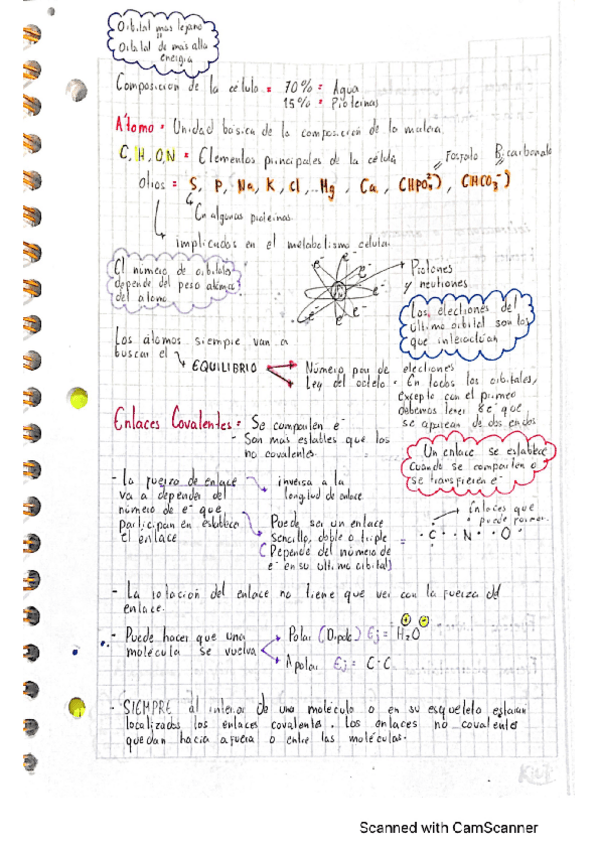 Orbital más lejano
=
Orbital de más alta
energía
Composición de la célula = 70% = Agua
15% = Proteínas
Átomo = Unidad básica de la composición de la materia.
C, H, O, N = Elementos principales de la célula
Fosfato Bicarbonato
Otros = S, P, Na, K, Cl, Mg, Ca, (HPO₄²⁻), (HCO₃⁻)
En algunas proteínas.
implicados en el metabolismo celular.
El número de orbitales
depende del peso atómico
del átomo
e⁻ e⁻ e⁻ e⁻ e⁻
Protones
y neutrones
Los electrones del
último orbital son los
que interactúan
Los átomos siempre van a
buscar el EQUILIBRIO
Número par de electrones
Ley del octeto. En todos los orbitales,
excepto con el primero
debemos tener 8e⁻ que
se aparean de dos en dos
Enlaces Covalentes = Se comparten e⁻
- Son más estables que los
no covalentes.
Un enlace se establece
cuando se comparten o
se transfieren e⁻
- La fuerza de enlace
va a depender del
número de e⁻ que
participan en establecer
el enlace
inversa a la
longitud de enlace.
Puede ser un enlace
sencillo, doble o triple
(Depende del número de
e⁻ en su último orbital)
Enlaces que
puede formar.
= ·C· ·N· ·O·
- La rotación del enlace no tiene que ver con la fuerza del
enlace.
- Puede hacer que una
molécula se vuelva
Polar (Dipolo) Ej = H₂O
Apolar Ej = C-C
- SIEMPRE al interior de una molécula o en su esqueleto estarán
localizados los enlaces covalente. Los enlaces no covalente
quedan hacia afuera o entre las moléculas.
Scanned with CamScanner